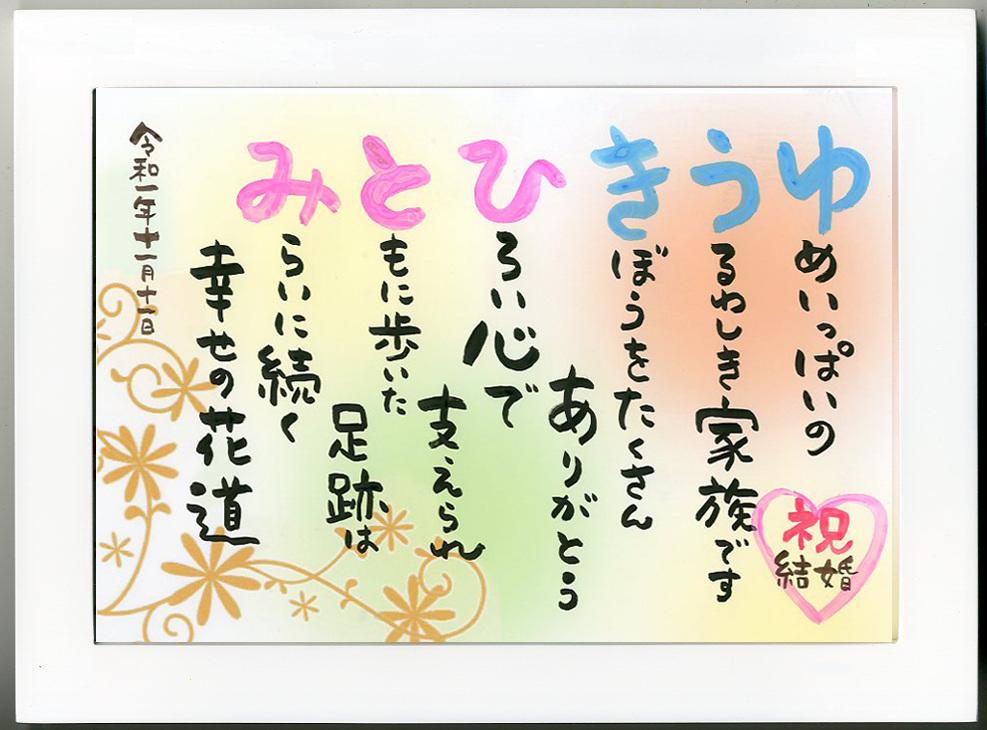 ゆめいっぱいの
うるわしき家族です
きぼうをたくさん
ありがとう
ひろい心で
支えられ
ともに歩いた
足跡は
みらいに続く
幸せの花道
令和一年十一月十一日
祝
結婚